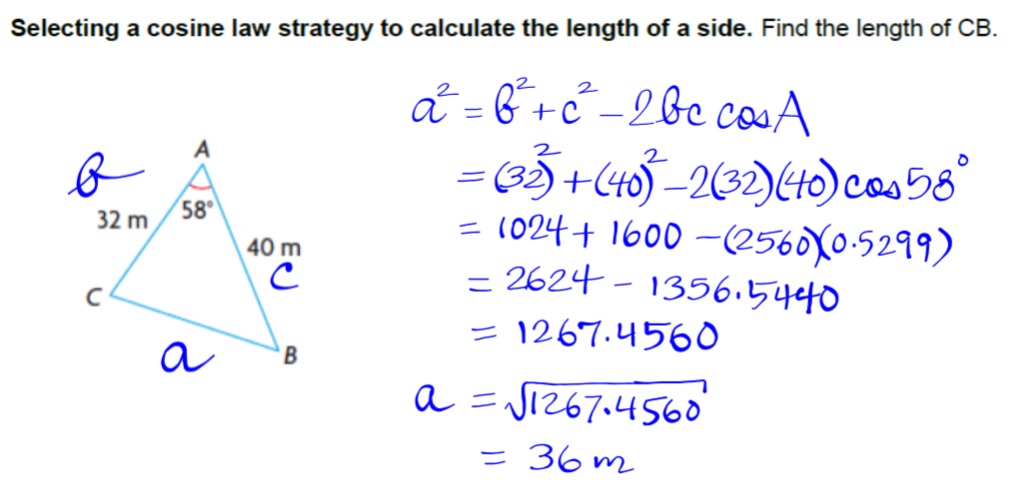 Selecting a cosine law strategy to calculate the length of a side. Find the length of CB.
a² = b² + c² – 2bc cosA
= (32)² + (40)² – 2(32)(40) cos58°
= 1024 + 1600 – (2560)(0.5299)
= 2624 – 1356.5440
= 1267.4560
a = √1267.4560
= 36 m
A
b
58°
32 m
40 m
c
C
a
B